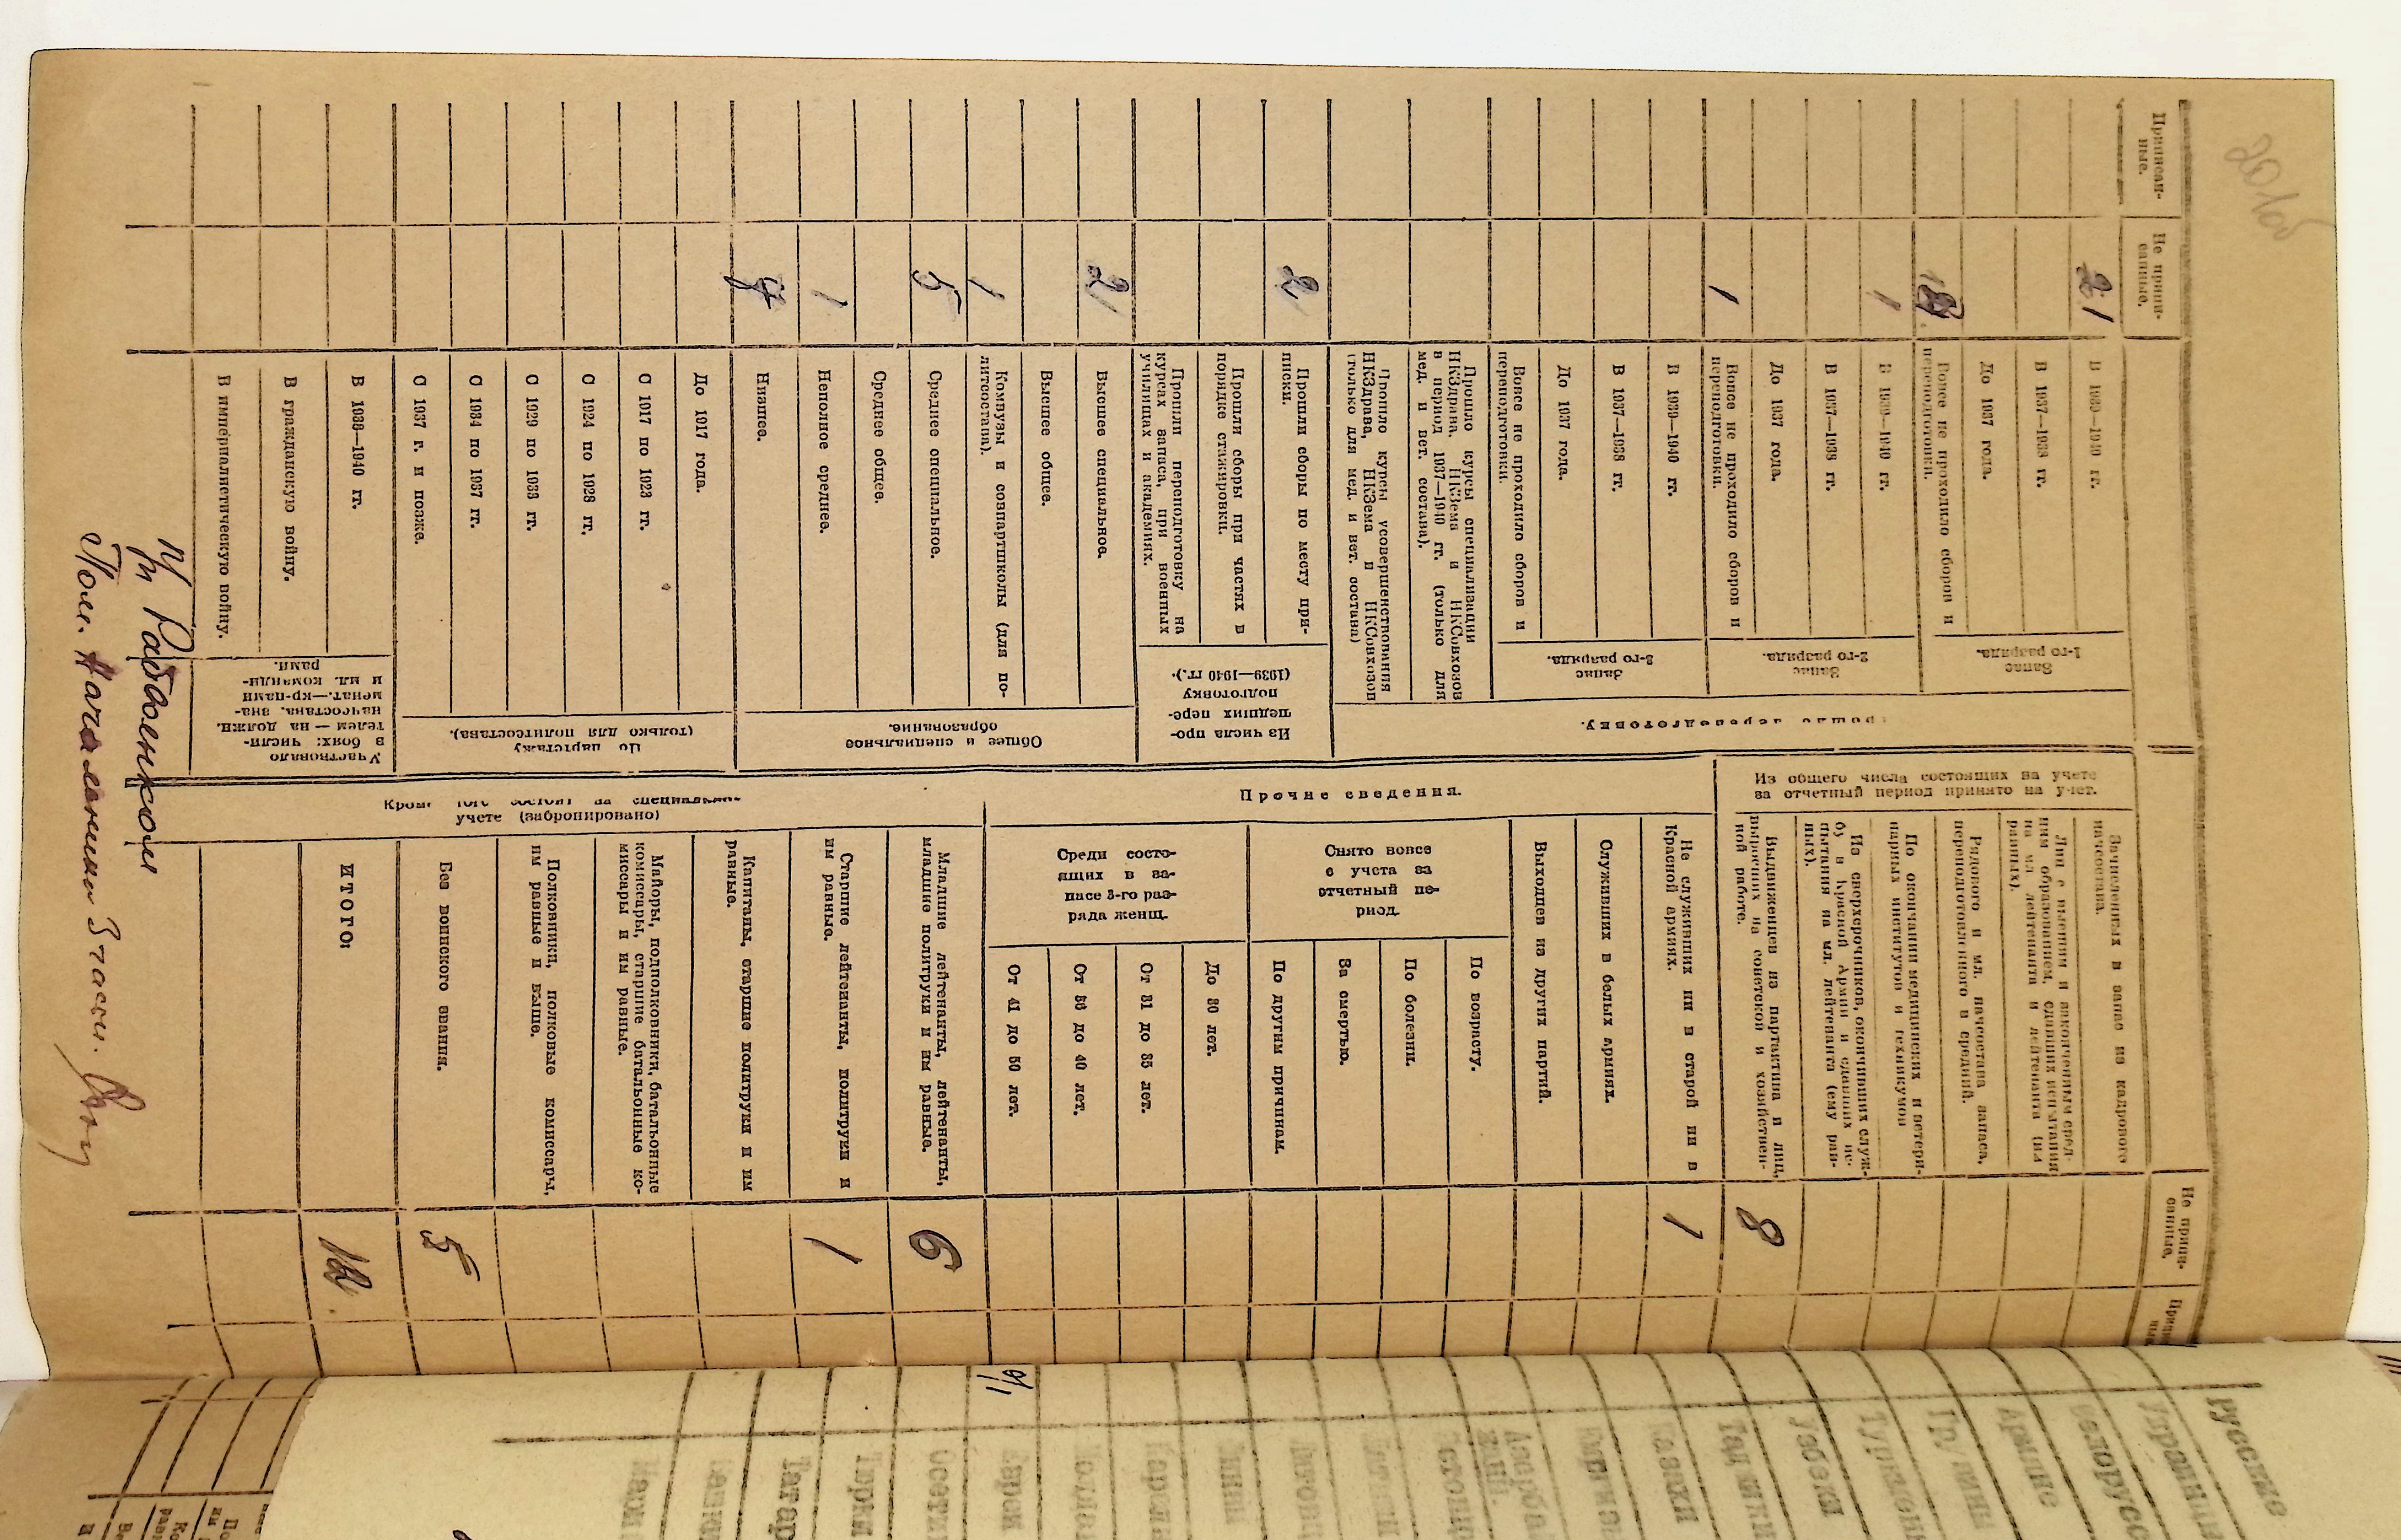 Приписан-
ные.
Не припи-
санные.
Прошло переподготовку.
Запас
1-го разряда.
В 1939—1940 гг.
21
В 1937—1938 гг.
До 1937 года.
Вовсе не проходило сборов и
переподготовки.
Запас
2-го разряда.
В 1939—1940 гг.
1
В 1937—1938 гг.
До 1937 года.
Вовсе не проходило сборов и
переподготовки.
1
Запас
3-го разряда.
В 1939—1940 гг.
В 1937—1938 гг.
До 1937 года.
Вовсе не проходило сборов и
переподготовки.
Прошло курсы специализации
НКЗдрава, НКЗема и НКСовхозов
в период 1937—1940 гг. (только для
мед. и вет. состава).
Прошло курсы усовершенствования
НКЗдрава, НКЗема и НКСовхозов
(только для мед. и вет. состава)
Из числа про-
шедших пере-
подготовку
(1939—1940 гг.).
Прошли сборы по месту при-
писки.
2
Прошли сборы при частях в
порядке стажировки.
Прошли переподготовку на
курсах запаса, при военных
училищах и академиях.
Общее и специальное
образование.
Высшее специальное.
2
Высшее общее.
Комвузы и совпартшколы (для по-
литсостава).
1
Среднее специальное.
5
Среднее общее.
Неполное среднее.
1
Низшее.
По партстажу
(только для политсостава).
До 1917 года.
С 1917 по 1923 гг.
С 1924 по 1928 гг.
С 1929 по 1933 гг.
С 1934 по 1937 гг.
С 1937 г. и позже.
Участвовало
в боях: числи-
телем — на должн.
начсостава, зна-
менат.—кр-цами
и мл. команди-
рами.
В 1938—1940 гг.
В гражданскую войну.
В империалистическую войну.
Не припи-
санные.
Из общего числа состоящих на учете
за отчетный период принято на учет.
Зачисленных в запас из кадрового
начсостава.
Лиц с высшим и законченным сред-
ним образованием, сдавших испытания
на мл. лейтенанта и лейтенанта (им
равных).
Рядового и мл. начсостава запаса,
переподготовленного в средний.
По окончании медицинских и ветери-
нарных институтов и техникумов
Из сверхсрочников, окончивших служ-
бу в Красной Армии и сдавших ис-
пытания на мл. лейтенанта (ему рав-
ных).
Выдвиженцев из партактива и лиц,
выросших на советской и хозяйствен-
ной работе.
8
Прочие сведения.
Не служивших ни в старой ни в
Красной армиях.
1
Служивших в белых армиях.
Выходцев из других партий.
Снято вовсе
с учета за
отчетный пе-
риод.
По возрасту.
По болезни.
За смертью.
По другим причинам.
Среди состо-
ящих в за-
пасе 3-го раз-
ряда женщ.
До 30 лет.
От 31 до 35 лет.
От 36 до 40 лет.
От 41 до 50 лет.
Кроме того состоит на специальном
учете (забронировано)
Младшие лейтенанты, лейтенанты,
младшие политруки и им равные.
6
Старшие лейтенанты, политруки и
им равные.
1
Капитаны, старшие политруки и им
равные.
Майоры, подполковники, батальонные
комиссары, старшие батальонные ко-
миссары и им равные.
Полковники, полковые комиссары,
им равные и выше.
Без воинского звания.
5
ИТОГО:
12.
Пом. Начальника 3 части.
Русские